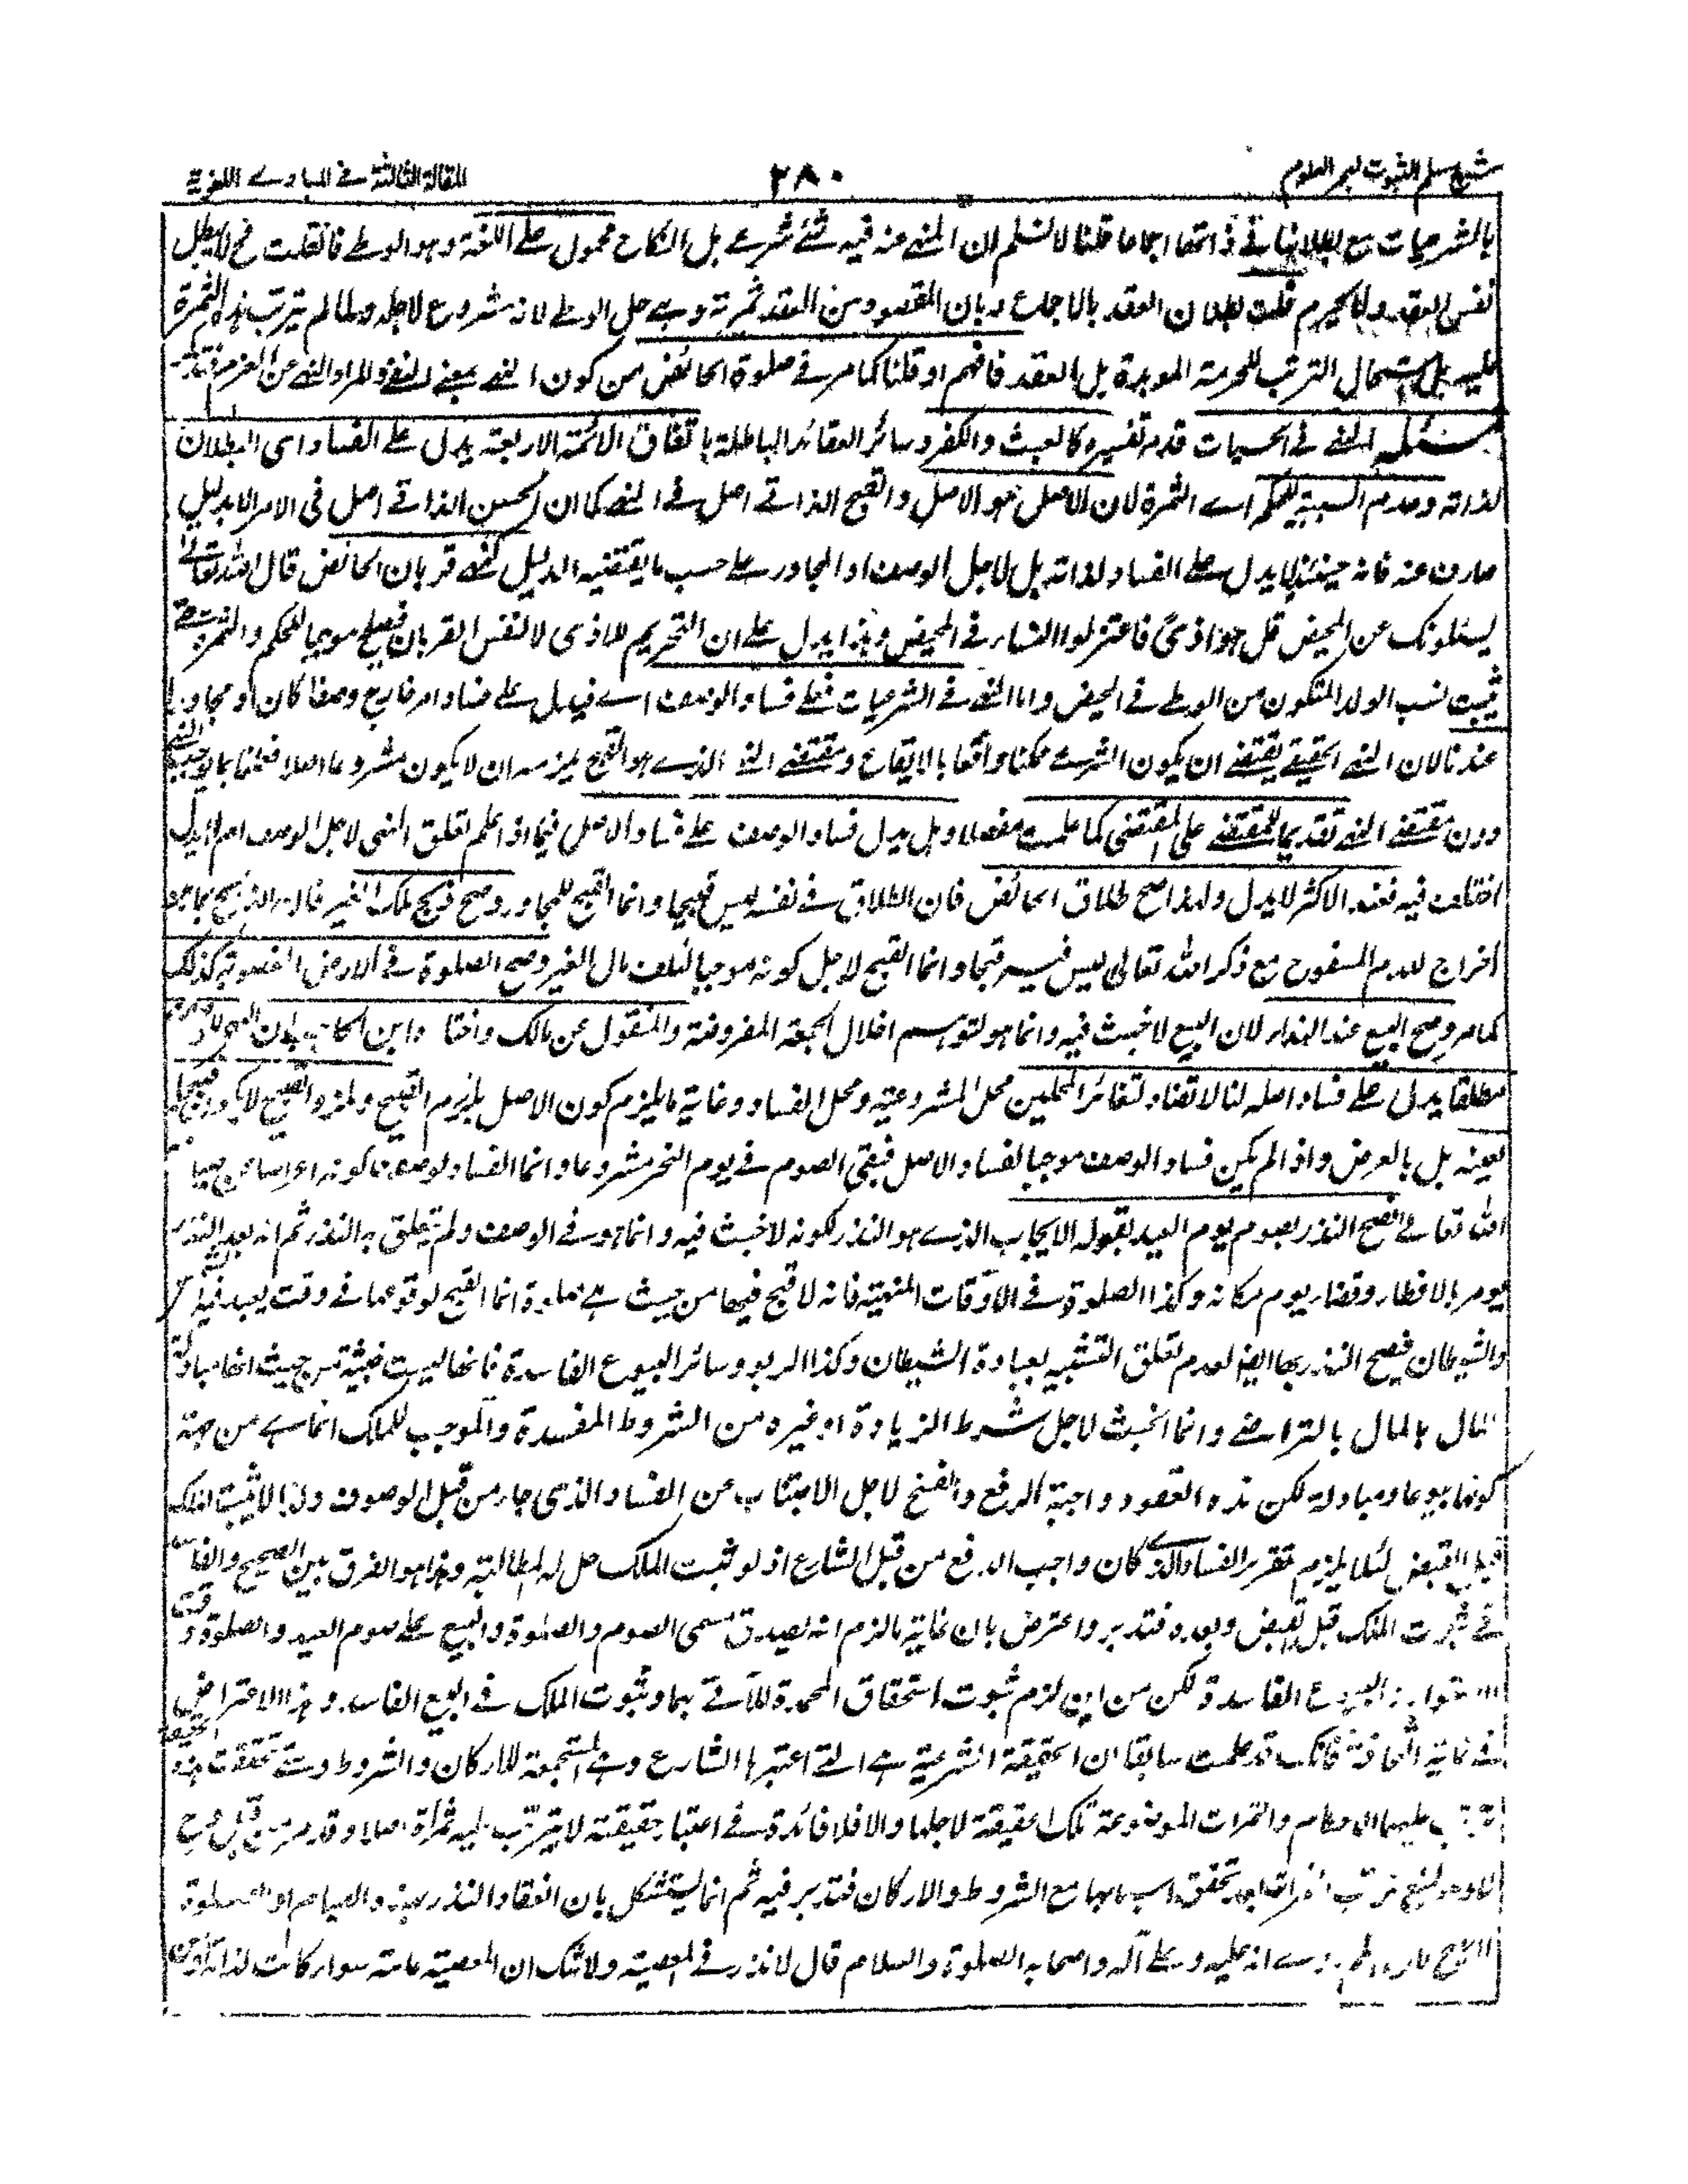 شرح مسلم الثبوت لبحر العلوم
٢٨٠
المقالة الثالثة في المبادي اللغوية
بالشرعيات مع بطلانها في ذاتها اجماعا قلنا لا نسلم ان المنهي عنه فيه شئ شرعي بل النكاح محمول على اللغة وهو الوطي فان قلت فح لا يبطل
نفس العقد ولا يحرم قلت بطلان العقد بالاجماع وبان المقصود من العقد ثمرته وهي حل الوطي لانه مشروع لاجله ولما لم يترتب هذه الثمرة
عليه بل استحال الترتب للحرمة الموبدة بل العقد فافهم او قلنا كما مر في صلوة الحائض من كون النهي بمعنى النفي والمراد النهي عن العزم فتدبر
مسئلة النهي في الحسيات قد مر تفسيره كالعبث والكفر وسائر العقائد الباطلة باتفاق الائمة الاربعة يدل على الفساد اى البطلان
لذاته وعدم السببية للحكم اي الثمرة لان الاصل هو الاصل والقبح الذاتي اصل في النهي كما ان الحسن الذاتي اصل في الامر الا بدليل
صارف عنه فانه حينئذ لا يدل على الفساد لذاته بل لاجل الوصف او المجاور على حسب ما يقتضيه الدليل كنهي قربان الحائض قال الله تعالى
يسئلونك عن المحيض قل هو اذى فاعتزلوا النساء في المحيض وهذا يدل على ان التحريم للاذى لا لنفس القربان فيصلح موجبا للحكم والثمرة حتى
يثبت نسب الولد المتكون من الوطي في الحيض واما النهي في الشرعيات فعلى فساد الوصف اي فيدل على فساد امر خارج وصفا كان او مجاورا
عندنا لان النهي الحقيقي يقتضي ان يكون الشرعي ممكنا واقعا بالايقاع ومقتضى النهي الذي هو القبح يلزمه ان لا يكون مشروعا اصلا فعلنا بما يوجبه النهي
دون مقتضى النهي تقديما للمقتضي على المقتضى كما علمت مفصلا وهل يدل فساد الوصف على فساد الاصل فيما اذا علم تعلق النهى لاجل الوصف ام لا يدل
اختلف فيه فعند الاكثر لا يدل ولهذا صح طلاق الحائض فان الطلاق في نفسه ليس قبيحا وانما القبح للمجاور وصح ذبح ملك الغير فان الذبح بما هو
اخراج للدم المسفوح مع ذكر الله تعالى ليس فيه قبحا وانما القبح لاجل كونه موجبا لتلف مال الغير وصح الصلوة في الارض المغصوبة كذلك
كما مر وصح البيع عند النداء لان البيع لا خبث فيه وانما هو لتوهم اخلال الجمعة المفروضة والمنقول عن مالك واختاره ابن الحاجب ان النهي
مطلقا يدل على فساد اصله لنا لا تضاد لتغائر المحلين محل المشروعية ومحل الفساد وغاية ما يلزم كون الاصل يلزم القبيح وملزوم القبيح لا يكون قبيحا
لعينه بل بالعرض واذا لم يكن فساد الوصف موجبا لفساد الاصل فبقى الصوم في يوم النحر مشروعا وانما الفساد لوصف كونه اعراضا عن ضيافة
الله تعالى فصح النذر بصوم يوم العيد بقوله الايجاب الذي هو النذر لكونه لا خبث فيه وانما هو في الوصف ولم يتعلق به النذر ثم انه بعد النذر
يومر بالافطار وقضاء يوم مكانه وكذا الصلوة في الاوقات المنهية فانه لا قبح فيها من حيث هي صلوة انما القبح لوقوعها في وقت يعبد فيه
والشيطان فيصح النذر بها ايضا لعدم تعلق التشبيه بعبادة الشيطان وكذا الربو وسائر البيوع الفاسدة فانها ليست خبيثة من حيث انها مبادلة
المال بالمال بالتراضي وانما الخبث لاجل شرط الزيادة او غيره من الشروط المفسدة والموجب للملك انما هي من جهة
كونها بيوعا ومبادلة لكن هذه العقود واجبة الرفع والفسخ لاجل الاجتناب عن الفساد الذى جاء من قبل الوصف ولذا لا يثبت الملك
قبل القبض لئلا يلزم تقرير الفساد الذي كان واجب الرفع من قبل الشارع اذ لو ثبت الملك حل له المطالبة وهذا هو الفرق بين الصحيح والفاسد
في ثبوت الملك قبل القبض وبعده فتدبر واعترض بان غاية ما لزم انه يصدق مسمى الصوم والصلوة والبيع على صوم العيد والصلوة وقت
البيوع الفاسدة ولكن من اين لزم ثبوت استحقاق المحمدة للآتي بهما وثبوت الملك في البيع الفاسد وهذا الاعتراض
في غاية السخافة فانك قد علمت سابقا ان الحقيقة الشرعية هي التي اعتبرها الشارع وهي المستجمعة للاركان والشروط ومتى تحققت هذه الحقيقة
يترتب عليها الاحكام والثمرات الموضوعة تلك الحقيقة لاجلها والا فلا فائدة في اعتبار حقيقة لا يترتب عليه ثمرة اصلا وقد مر من قبل
ترتب الثمرات بعد تحقق اسبابها مع الشروط والاركان فتدبر فيه ثم انما يستشكل بان انعقاد النذر بهذه الصيام او الصلوة
عليه وعلى آله واصحابه الصلوة والسلام قال لا نذر في المعصية ولا شك ان المعصية عامة سواء كانت لذاته او